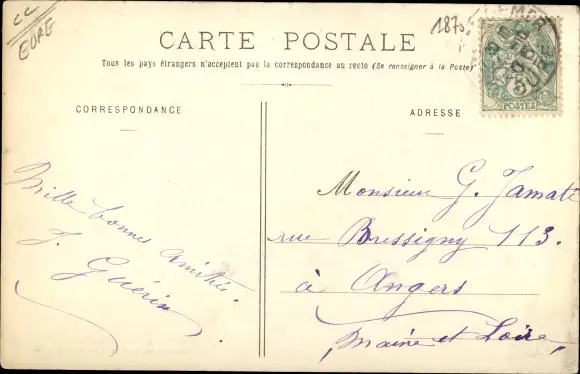 CC
EURE
1870
CARTE POSTALE
Tous les pays étrangers n'acceptent pas la correspondance au recto (Se renseigner à la Poste)
CORRESPONDANCE
ADRESSE
POSTES
Mille bonnes amitiés.
J. Guérin
Monsieur G. Jamate
rue Bressigny 113.
à Angers
Maine et Loire